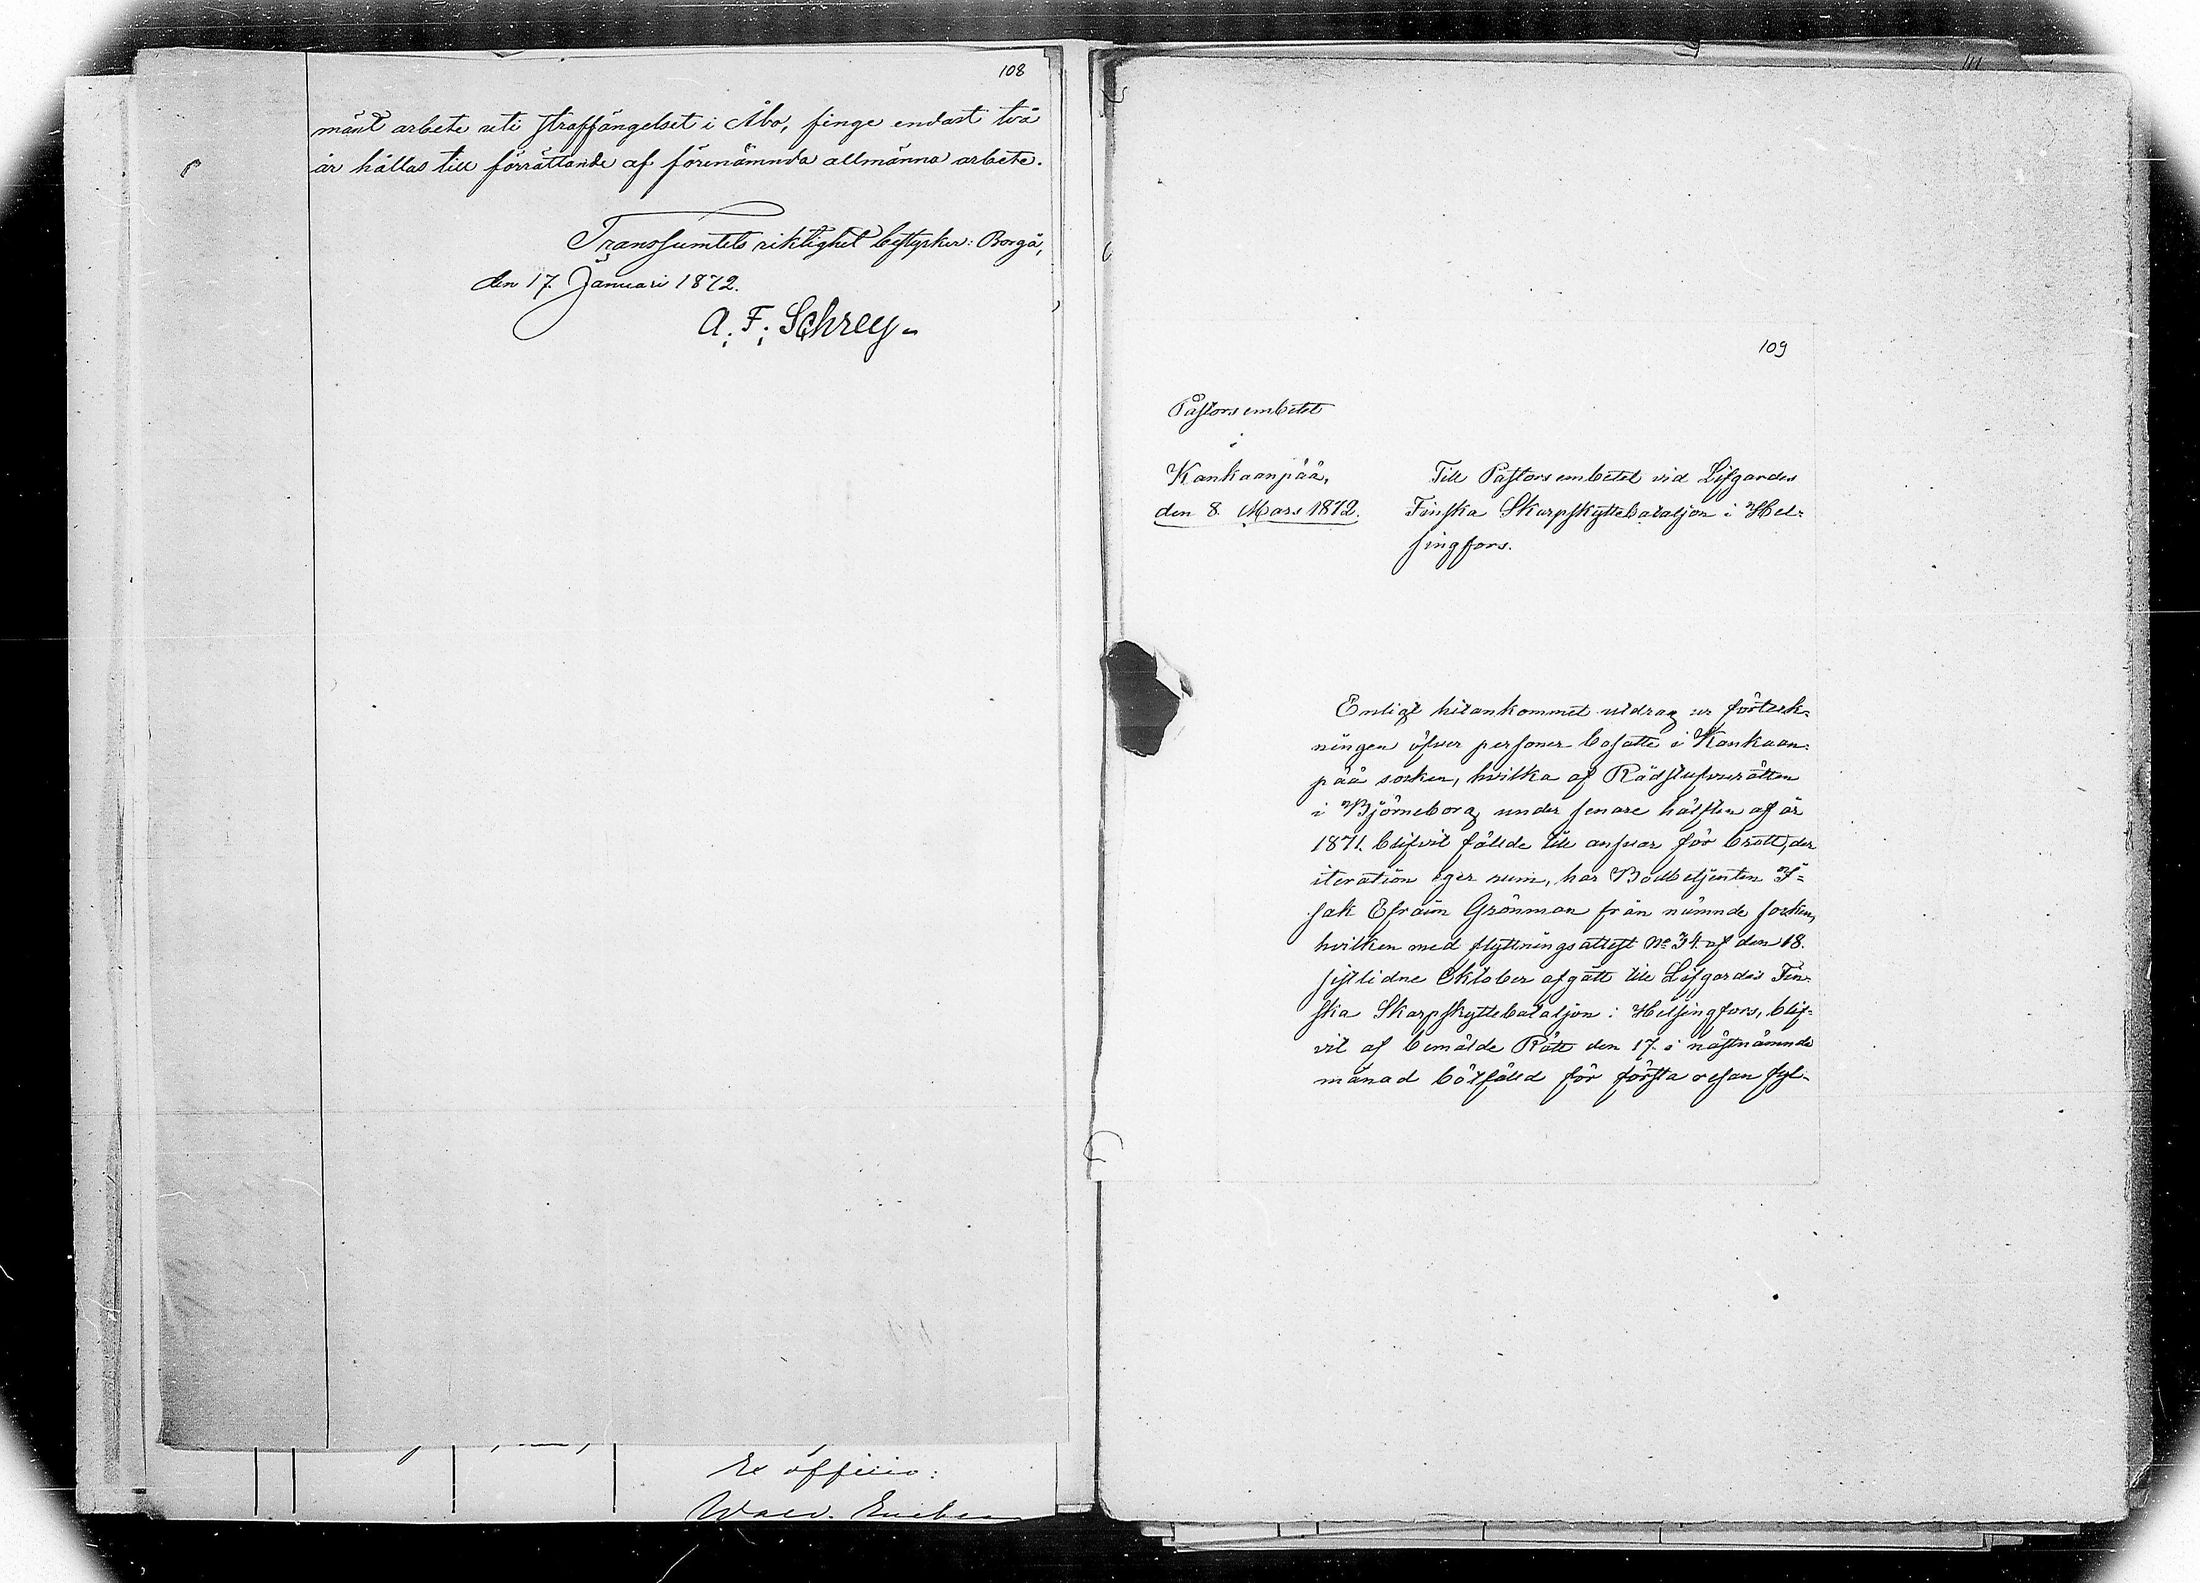 108
mänt arbete uti straffängelset i Åbo, finge endast två
år hållas till förrättande af förenämnda allmänna arbete.
Transsumtets riktighet bestyrker: Borgå,
den 17 Januari 1872.
A. F. Schrey
Ex officio:
109
Pastorsembetet
i
Kankaanpää,
den 8. Mars 1872.
Till Pastorsembetet vid Lifgardes
Finska Skarpskyttebataljon i Hel-
singfors.
Enligt hitankommet utdrag ur förteck-
ningen öfver personer bosatte i Kankaan-
pää socken, hvilka af Rådstufvurätten
i Björneborg under senare hälften af år
1871. blifvit fällde till ansvar för brott, der
iteration eger rum, har Bodbetjenten I-
sak Efraim Grönman från nämnde socken,
hvilken med flyttningsattest No 34 af den 18.
sistlidne Oktober afgått till Lifgardes Fin-
ska Skarpskyttebataljon i Helsingfors, blif-
vit af bemälde Rätt den 17. i nästnämnde
månad bötfälld för första resan fyl-